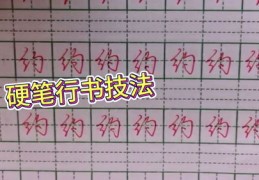 约约约约约约约
硬笔行书技法
约约约约约约约